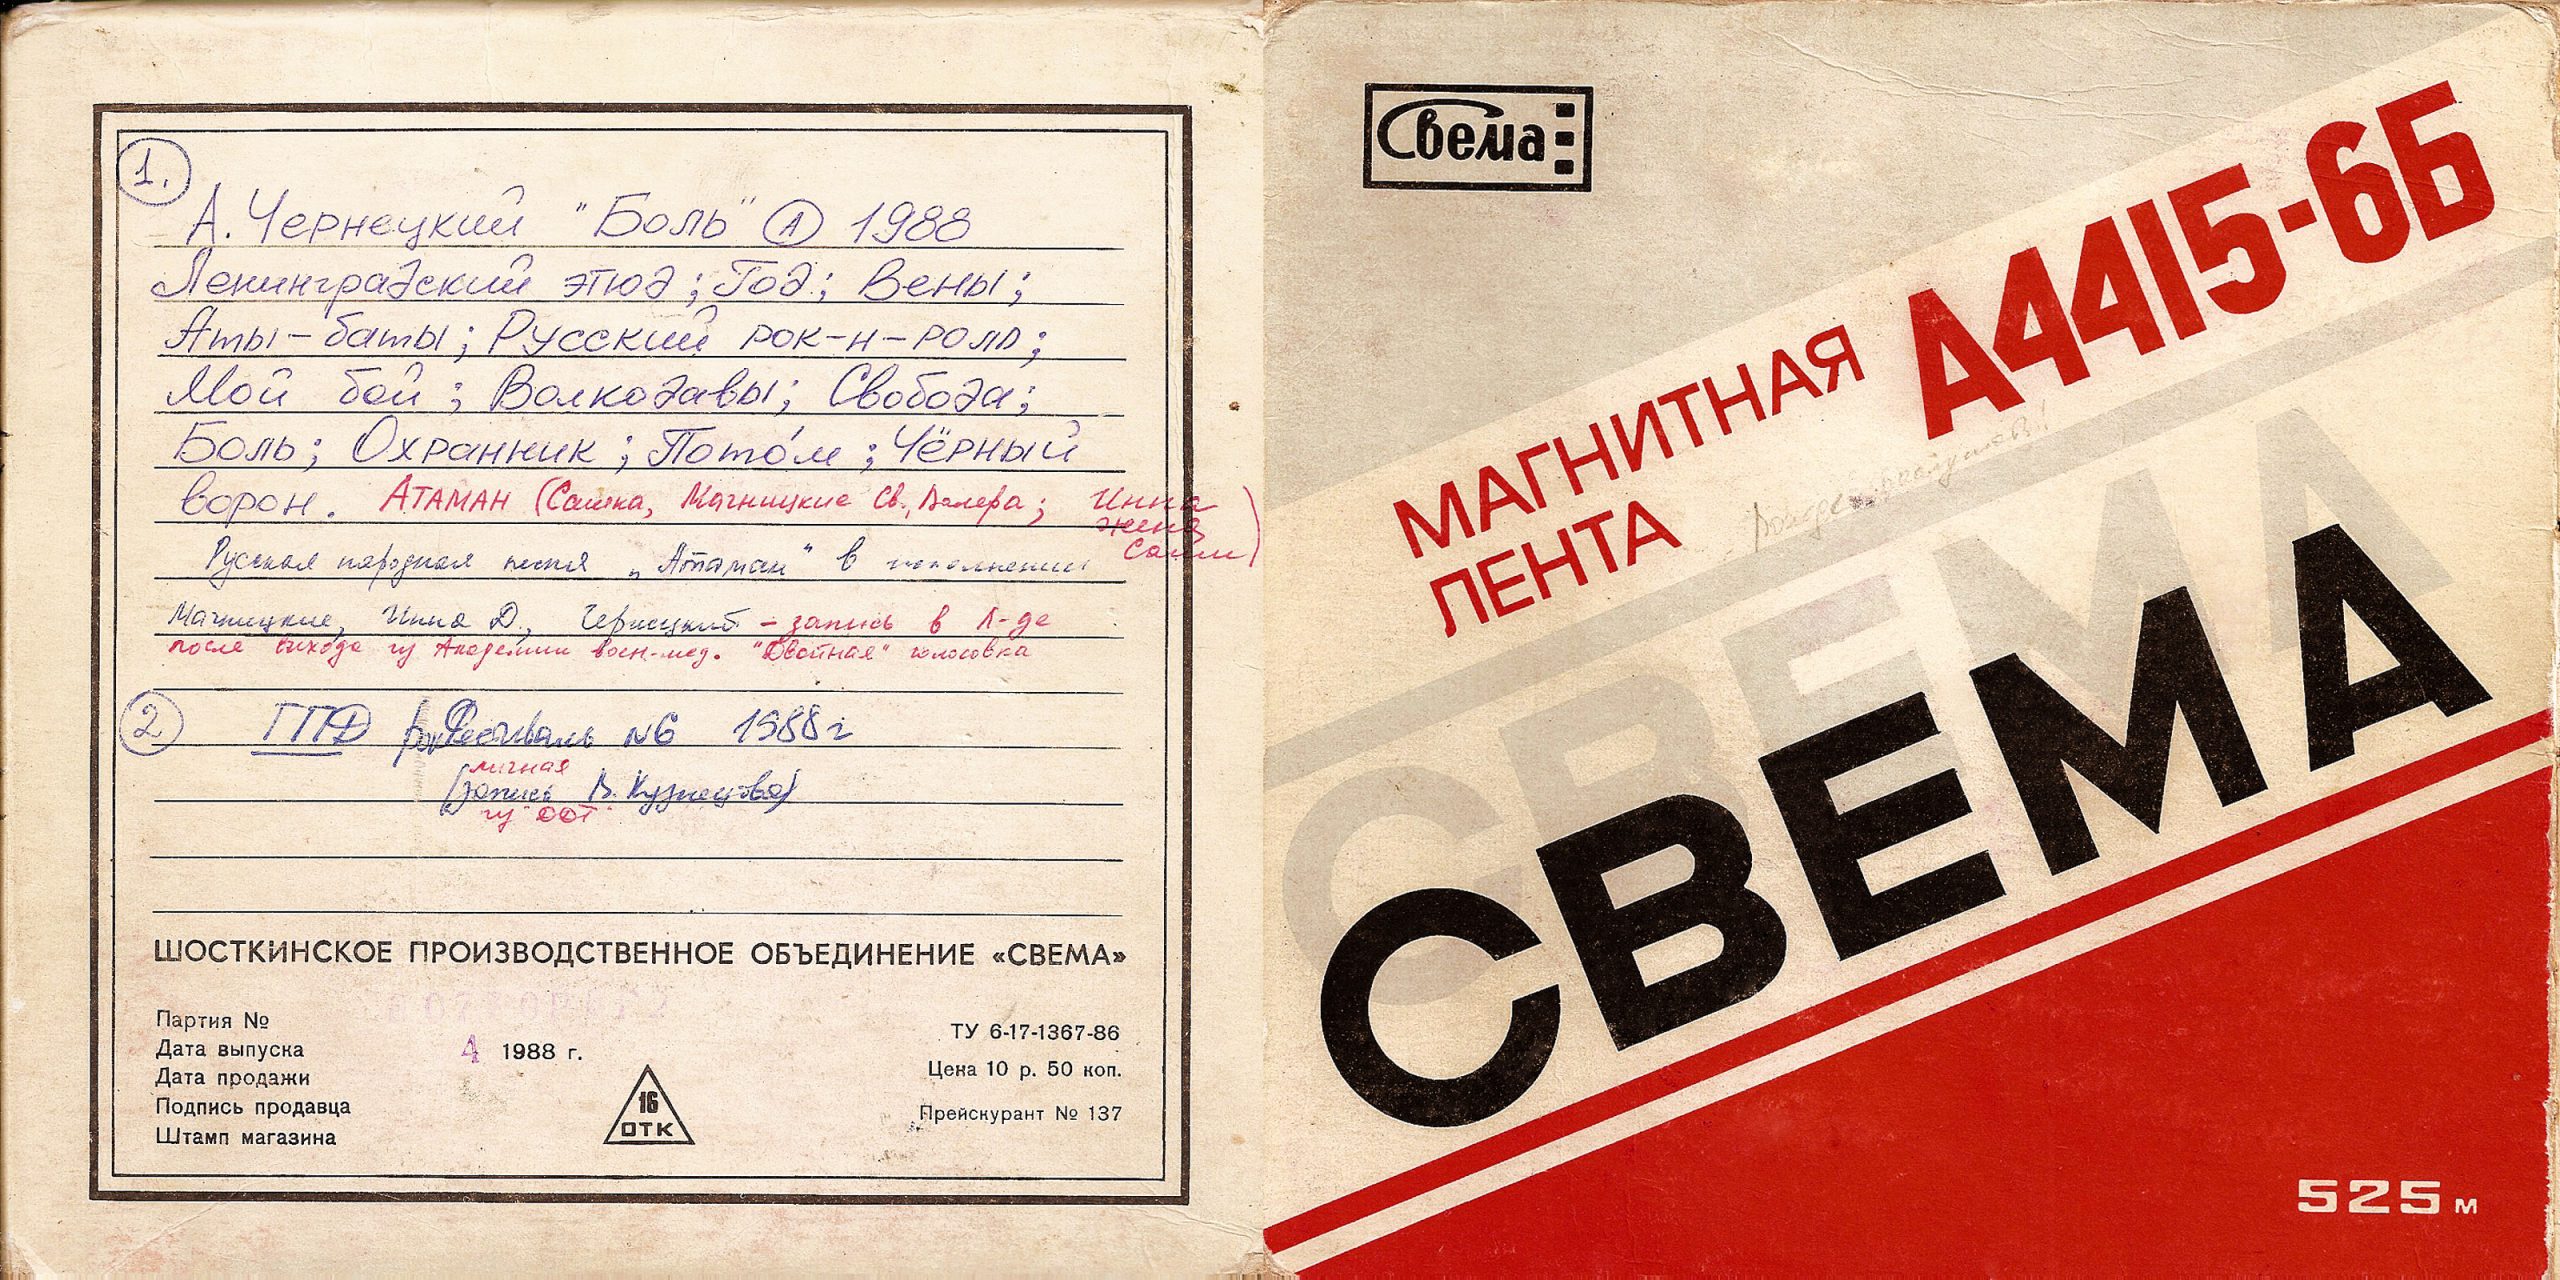 1.
А. Чернецкий "Боль" А 1988
Ленинградский этюд; Год; Вены;
Аты-баты; Русский рок-н-ролл;
Мой бой; Волкодавы; Свобода;
Боль; Охранник; Пото́м; Чёрный
ворон. Атаман (Сашка, Мачницкие Св., Валера; Инна
жена
Саши)
Русская народная песня „Атаман" в исполнении
Мачницкие, Инна Д., Чернецкий - запись в Л-де
после выхода из Академии воен-мед. "Двойная" голосовка
2 ГПД рок Фестиваль №6 1988 г
личная
(запись В. Кузнецова)
из "ДДТ"
ШОСТКИНСКОЕ ПРОИЗВОДСТВЕННОЕ ОБЪЕДИНЕНИЕ «СВЕМА»
Партия №
Дата выпуска 4 1988 г.
Дата продажи
Подпись продавца
Штамп магазина
16
ОТК
ТУ 6-17-1367-86
Цена 10 р. 50 коп.
Прейскурант № 137
Свема
МАГНИТНАЯ
ЛЕНТА
А4415-6Б
СВЕМА
СВЕМА
525 м